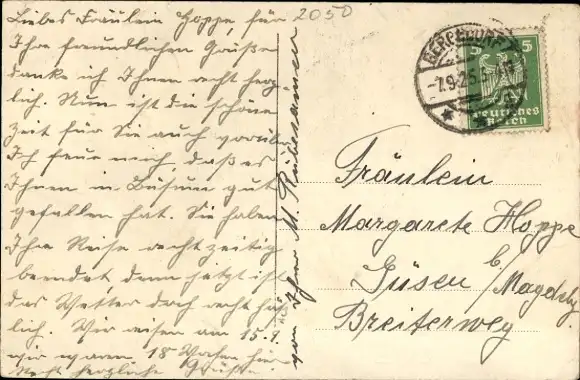 Liebes Fräulein Hoppe, für
Ihre freundlichen Grüße
danke ich Ihnen recht herz-
lich. Nun ist die schöne
Zeit für Sie auch vorüb.
Ich freue mich, daß es
Ihnen in Büsum gut
gefallen hat. Sie haben
Ihre Reise rechtzeitig
beendet, denn jetzt ist
das Wetter doch recht häß-
lich. Wir reisen am 15.9.
wir waren 18 Wochen hier
Recht herzliche Grüße
von Ihrer M. Rübesamen
2050
BERGEDORF
-7.9.25.
5 5
Deutsches
Reich
Fräulein
Margarete Hoppe
Güsen b/Magdbg
Breiterweg